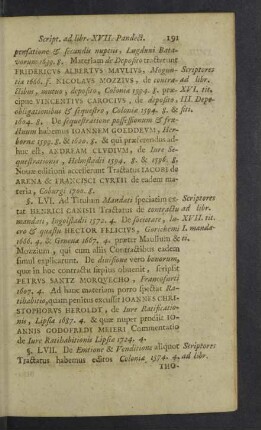 Script. ad libr. XVII. Pandect. 191
pensatione & secundis nuptiis, Lugduni Bata-
vorum 1639. 8. Materiam de Deposito tractarunt
FRIDERICUS ALBERTUS MAULIUS, Mogun- Scriptores
tiæ 1686. f. NICOLAUS MOZZIUS, de contra- ad libr.
ctibus, mutuo, deposito, Coloniæ 1594. 8. præ- XVI. tit.
cipue VINCENTIUS CAROCIUS, de deposito, III. Depo-
obligationibus & sequestro, Coloniæ 1594. 8. & siti.
1604. 8. De sequestratione possessionum & fru-
ctuum habemus IOANNEM GOLDDEUM, Her-
bornæ 1599. 8. & 1620. 8. & qui præferendus ad-
huc est, ANDREAM CLUDIUM, de Iure Se-
questrationis, Helmstadii 1594. 8. & 1596. 8.
Nouæ editioni accesserunt Tractatus IACOBI de
ARENA & FRANCISCI CURTII de eadem ma-
teria, Coburgi 1700. 8.
§. LVI. Ad Titulum Mandati speciatim ex- Scriptores
tat HENRICI CANISII Tractatus de contractu ad libr.
mandati, Ingolstadii 1572. 4. De societate, lu- XVII. tit.
cro & quæstu HECTOR FELICIUS, Gorichemi I. manda-
1666. 4. & Genevæ 1667. 4. præter Maulium & ti.
Mozzium, qui cum aliis Contractibus eadem
simul explicarunt. De diuisione vero bonorum,
quæ in hoc contractu sæpius obuenit, scripsit
PETRUS SANTZ MORQUECHO, Francofurti
1607. 4. Ad hanc materiam porro spectat Ra-
tihabitio, quam penitus excussit IOANNES CHRI-
STOPHORUS HEROLDT, de Iure Ratificatio-
nis, Lipsiæ 1687. 4. & quæ nuper prodiit IO-
ANNIS GODOFREDI MEIERI Commentatio
de Iure Ratihabitionis Lipsiæ 1724. 4.
§. LVII. De Emtione & Venditione aliquot Scriptores
Tractatus habemus editos Coloniæ 1574. 4. ad libr.
THO-